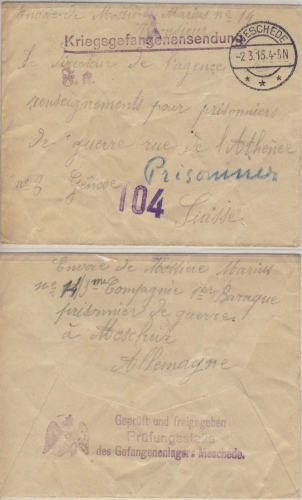 Envoie de Messine Marius nº 14
Kriegsgefangenensendung
MESCHEDE
-2.3.15.4-5N
* * *
Le directeur de l'agence
F. R.
renseignements pour prisonniers
de guerre rue de l'Athénée
nº 9 Génève Prisonnier
104
Suisse
Envoie de Messine Marius
nº 14/3me Compagnie 1er Baraque
prisonnier de guerre
à Meschede
Allemagne
Geprüft und freigegeben
Prüfungsstelle
des Gefangenenlagers Meschede.